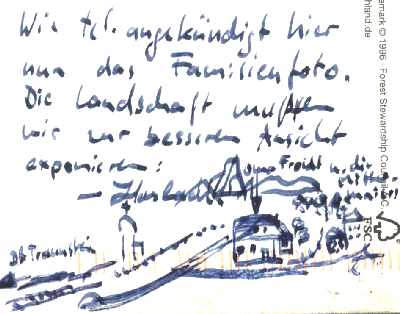 Wie tel. angekündigt hier
nun das Familienfoto.
Die Landschaft mußten
wir zur besseren Ansicht
exponieren:
DB Traunstein
emark © 1996 Forest Stewardship Co
hland.de
FSC